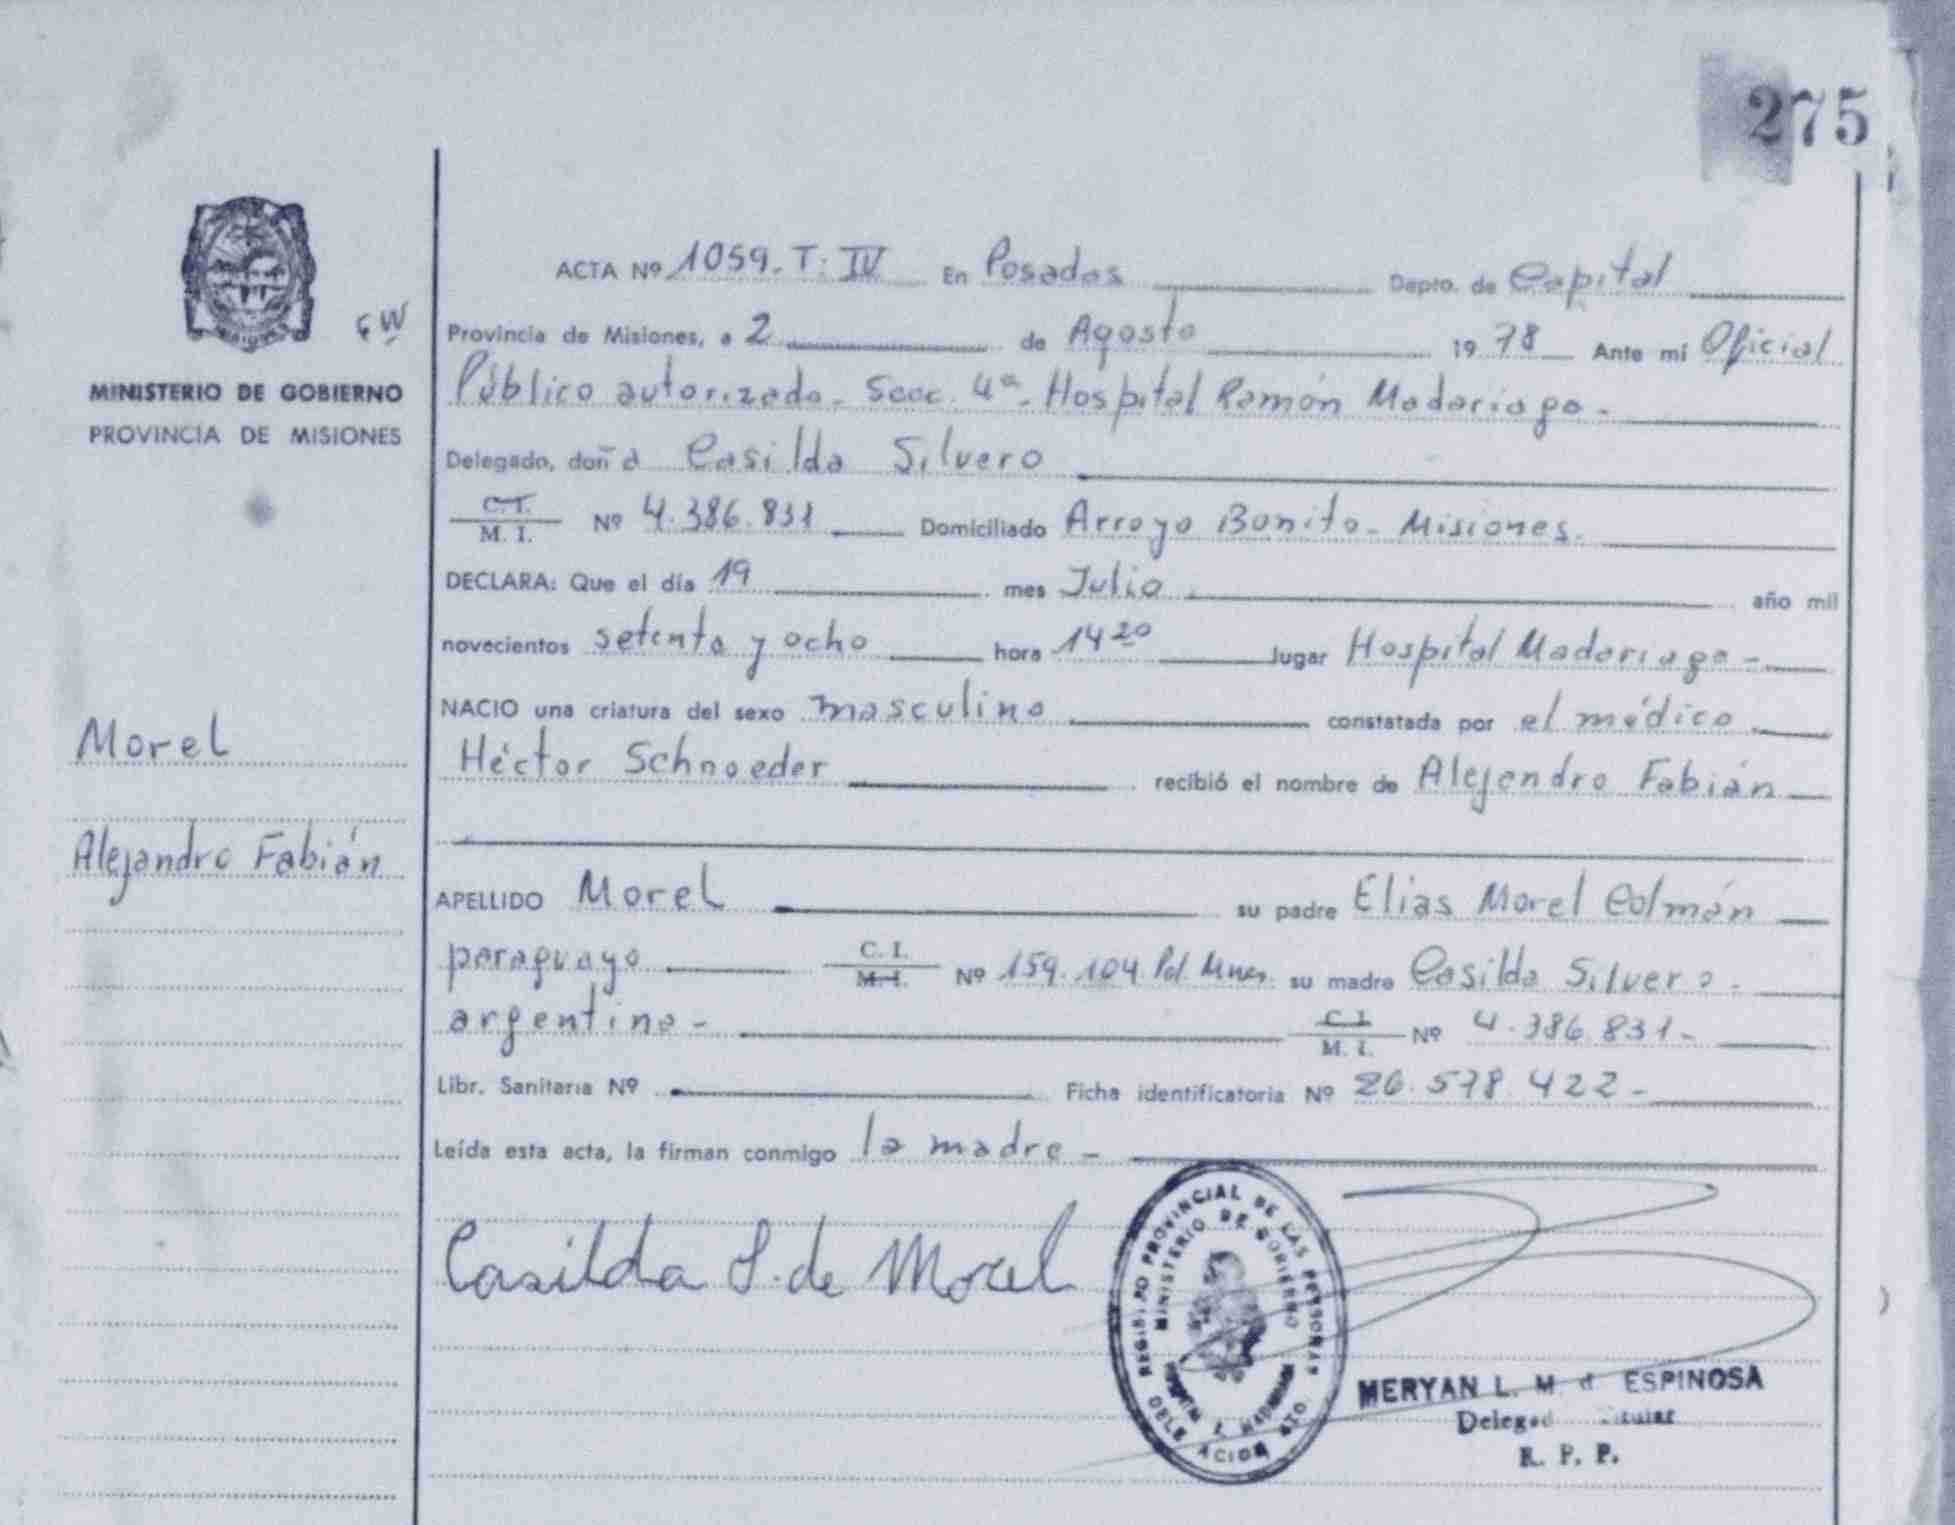 275
ACTA Nº 1059. T: IV En Posadas Depto. de Capital
Provincia de Misiones, a 2 de Agosto 19 78 Ante mi Oficial
MINISTERIO DE GOBIERNO
PROVINCIA DE MISIONES
Público autorizado. Secc. 4ª. Hospital Ramón Madariaga -
Delegado, doña Casilda Silvero
C. I.
M. I. Nº 4.386.831 Domiciliado Arroyo Bonito - Misiones.
DECLARA: Que el día 19 mes Julio año mil
novecientos setenta y ocho hora 14 20 lugar Hospital Madariaga -
NACIO una criatura del sexo masculino constatada por el médico
Héctor Schnoeder recibió el nombre de Alejandro Fabián
Morel
Alejandro Fabián
APELLIDO Morel su padre Elias Morel Colmán
paraguayo C. I.
M. I. Nº 159.104 Pol. Mnes. su madre Casilda Silvero -
argentina - C. I.
M. I. Nº 4.386.831 -
Libr. Sanitaria Nº Ficha identificatoria Nº 26.578.422 -
Leída esta acta, la firman conmigo la madre -
Casilda S. de Morel
REGISTRO PROVINCIAL DE LAS PERSONAS
MINISTERIO DE GOBIERNO
DELEGACION
MERYAN L. M. d ESPINOSA
R. P. P.